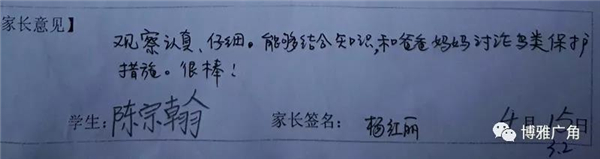 家长意见】
观察认真、仔细。能够结合知识,和爸爸妈妈讨论鸟类保护
措施。很棒!
学生:陈宗翰 家长签名: 杨红丽 4月15日
博雅广角
3.2